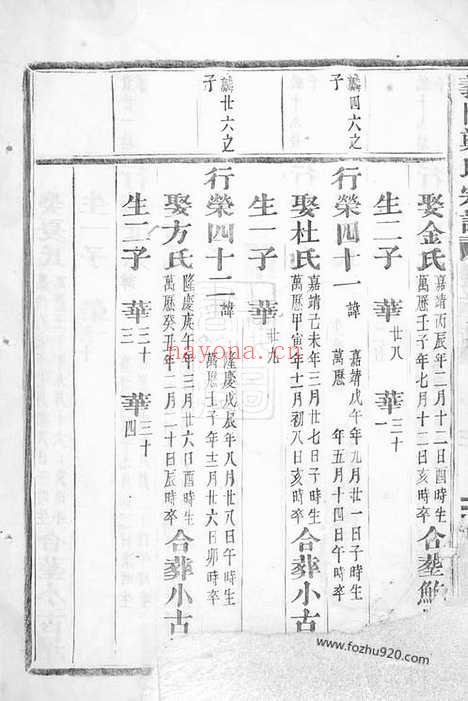 娶金氏 嘉靖丙辰年二月十二日酉時生 萬曆壬子年七月十二日亥時卒 合塟
生二子 華廿八 華三十一
麟四六之子
行榮四十一 諱 嘉靖戊午年九月廿一日子時生 萬曆 年五月十四日午時卒
娶杜氏 嘉靖己未年三月廿七日子時生 萬曆甲寅年十一月初八日亥時卒 合葬小古
生一子 華廿九
麟廿六之子
行榮四十二 諱 隆慶戊辰年八月廿八日午時生 萬曆壬子年十二月廿六日卯時卒
娶方氏 隆慶庚午年三月廿六日酉時生 萬曆癸丑年二月二十日辰時卒 合葬小古
生二子 華三十三 華三十四
hayona.cn
www.fozhu920.com